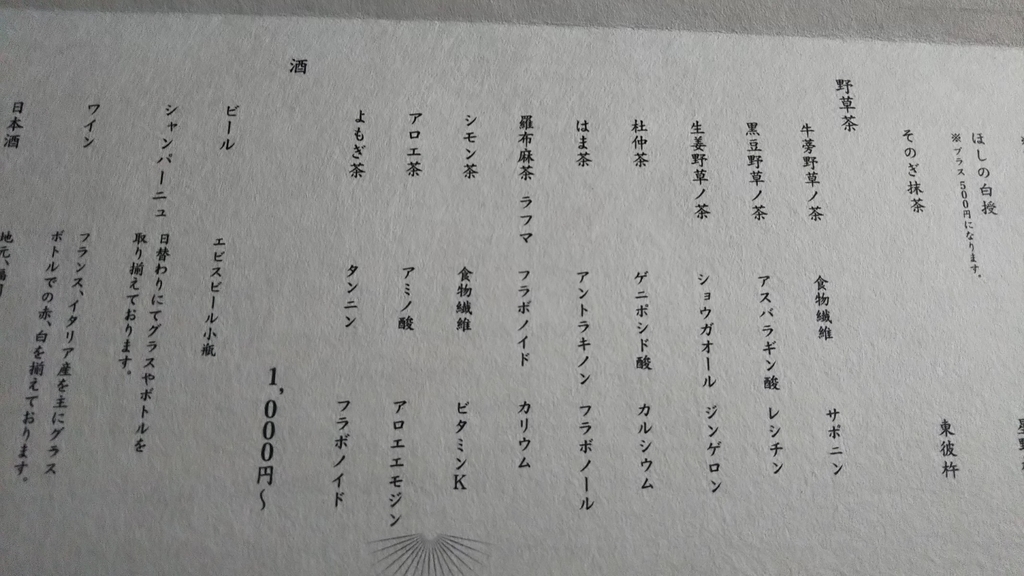 ほしの白授
※プラス500円になります。
そのぎ抹茶 東彼杵
野草茶
牛蒡野草ノ茶 食物繊維 サポニン
黒豆野草ノ茶 アスパラギン酸 レシチン
生姜野草ノ茶 ショウガオール ジンゲロン
杜仲茶 ゲニポシド酸 カルシウム
はま茶 アントラキノン フラボノール
羅布麻茶 ラフマ フラボノイド カリウム
シモン茶 食物繊維 ビタミンK
アロエ茶 アミノ酸 アロエエモジン
よもぎ茶 タンニン フラボノイド
酒
1,000円〜
ビール エビスビール小瓶
シャンパーニュ 日替わりにてグラスやボトルを
取り揃えております。
ワイン フランス、イタリア産を主にグラス
ボトルでの赤、白を揃えております。
日本酒 地元、